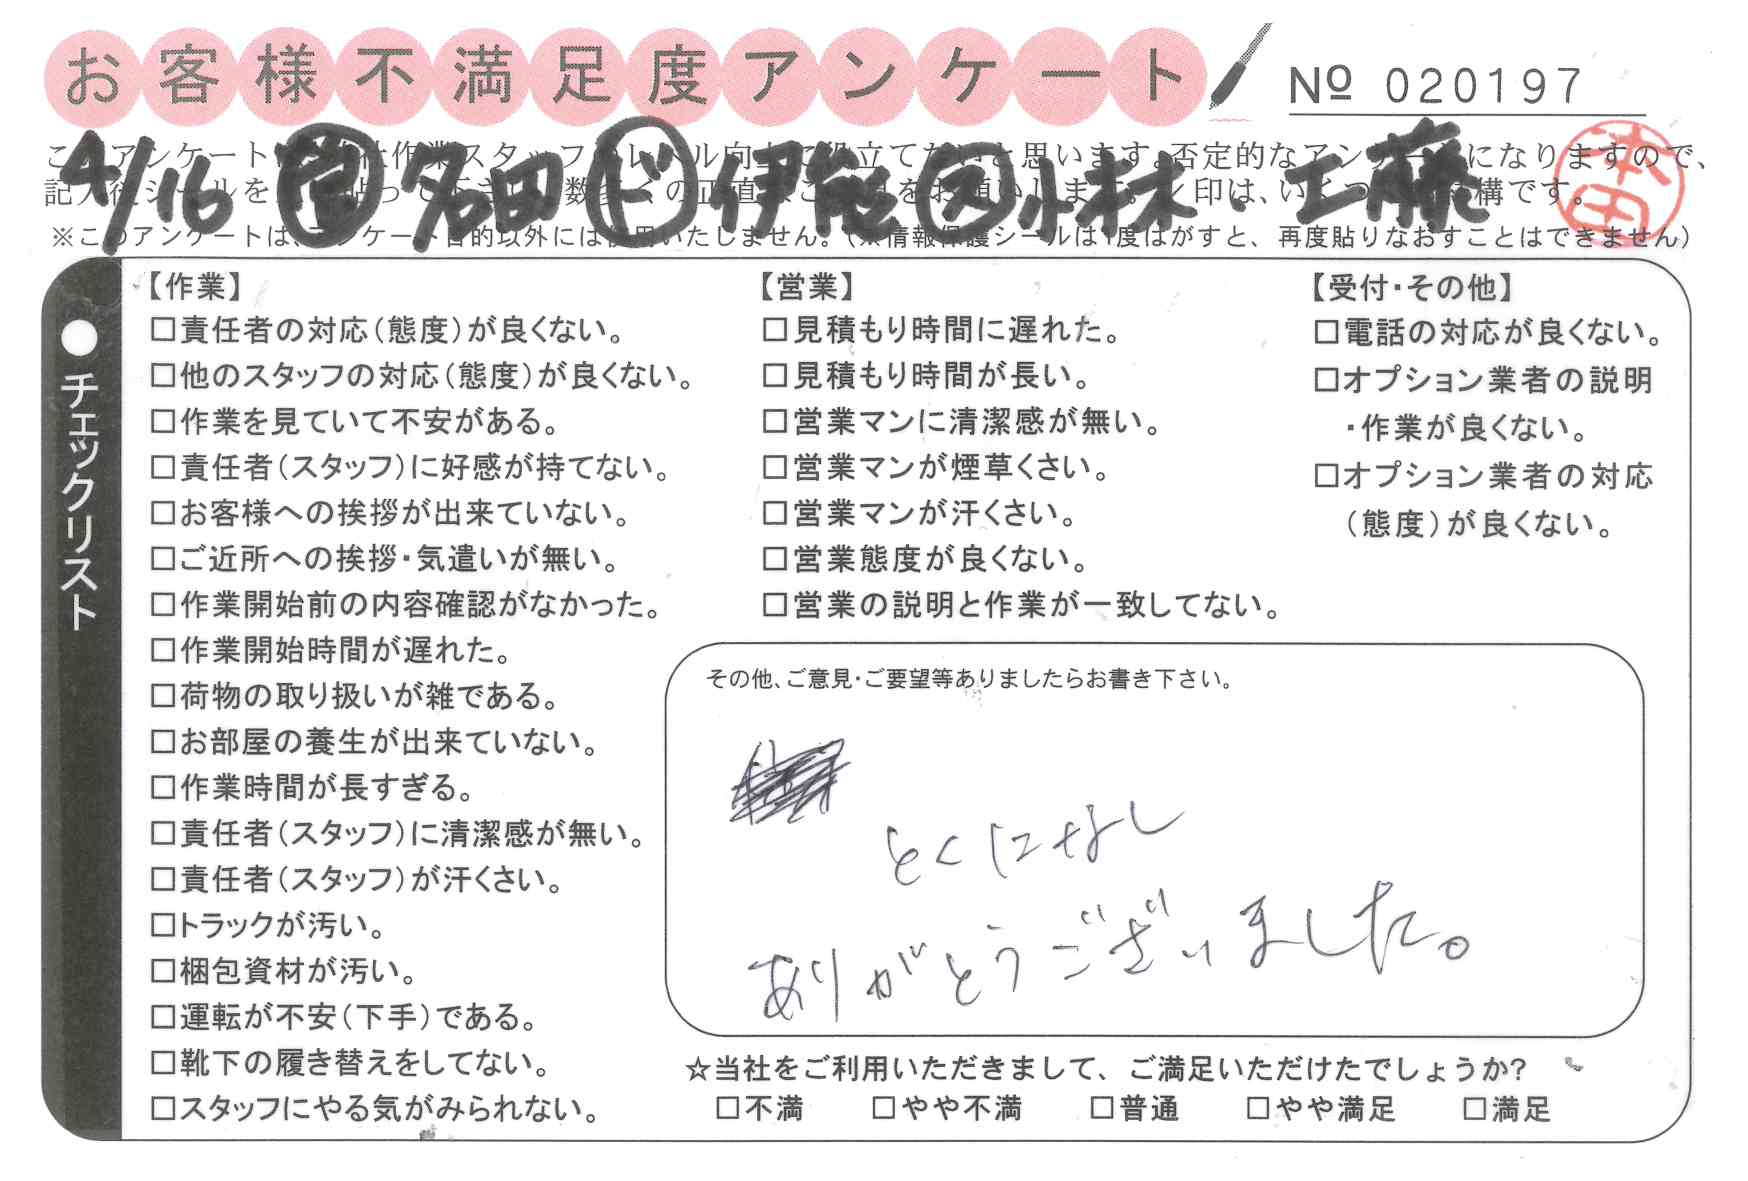 お客様不満足度アンケート
№ 020197
4/16 営 名田 ド 伊能 ス 小林・工藤
本田
※このアンケートは、アンケート目的以外には使用いたしません。(※情報保護シールは1度はがすと、再度貼りなおすことはできません)
●チェックリスト
【作業】
□責任者の対応(態度)が良くない。
□他のスタッフの対応(態度)が良くない。
□作業を見ていて不安がある。
□責任者(スタッフ)に好感が持てない。
□お客様への挨拶が出来ていない。
□ご近所への挨拶・気遣いが無い。
□作業開始前の内容確認がなかった。
□作業開始時間が遅れた。
□荷物の取り扱いが雑である。
□お部屋の養生が出来ていない。
□作業時間が長すぎる。
□責任者(スタッフ)に清潔感が無い。
□責任者(スタッフ)が汗くさい。
□トラックが汚い。
□梱包資材が汚い。
□運転が不安(下手)である。
□靴下の履き替えをしてない。
□スタッフにやる気がみられない。
【営業】
□見積もり時間に遅れた。
□見積もり時間が長い。
□営業マンに清潔感が無い。
□営業マンが煙草くさい。
□営業マンが汗くさい。
□営業態度が良くない。
□営業の説明と作業が一致してない。
【受付・その他】
□電話の対応が良くない。
□オプション業者の説明
・作業が良くない。
□オプション業者の対応
(態度)が良くない。
その他、ご意見・ご要望等ありましたらお書き下さい。
とくになし
ありがとうございました。
☆当社をご利用いただきまして、ご満足いただけたでしょうか?
□不満 □やや不満 □普通 □やや満足 □満足